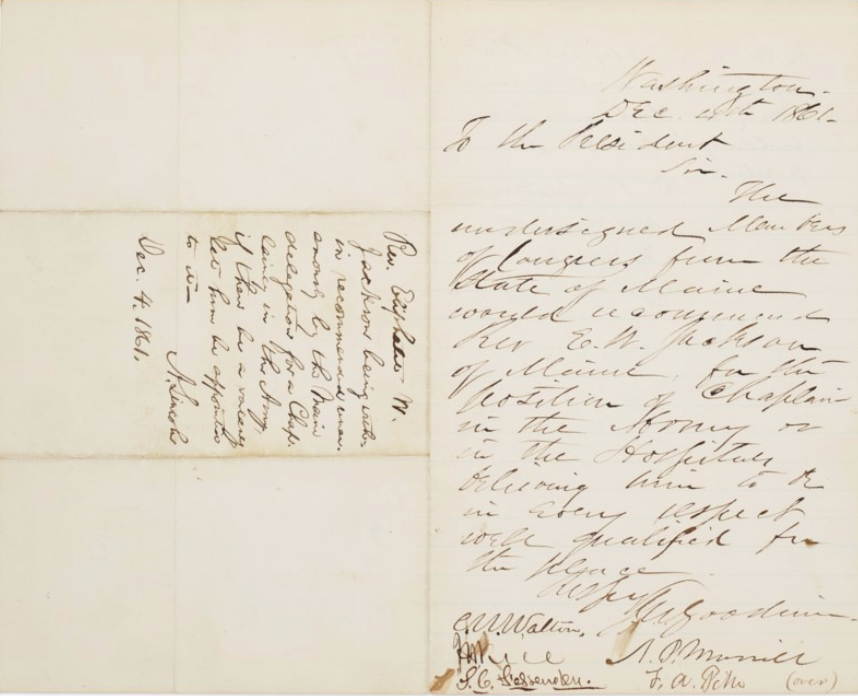 Washington.
Dec. 4th 1861.
To the President
Sir.
The
undersigned Members
of Congress from the
State of Maine
would recommend
Rev E. W. Jackson
of Maine, for the
position of Chaplain
in the Army or
in the Hospitals
believing him to be
in every respect
well qualified for
the place
Respy
J N Goodwin
C. W. Walton,
J H Rice
A. P. Morrill
S. C. Fessenden.
F. A. Pike
(over)
Rev. W.
Jackson being
in recommended unan-
amously by the Maine
delegation for a Chap-
laincy in the Army
if there be a vacancy
let him be appointed
to it—
A. Lincoln
Dec. 4, 1861.